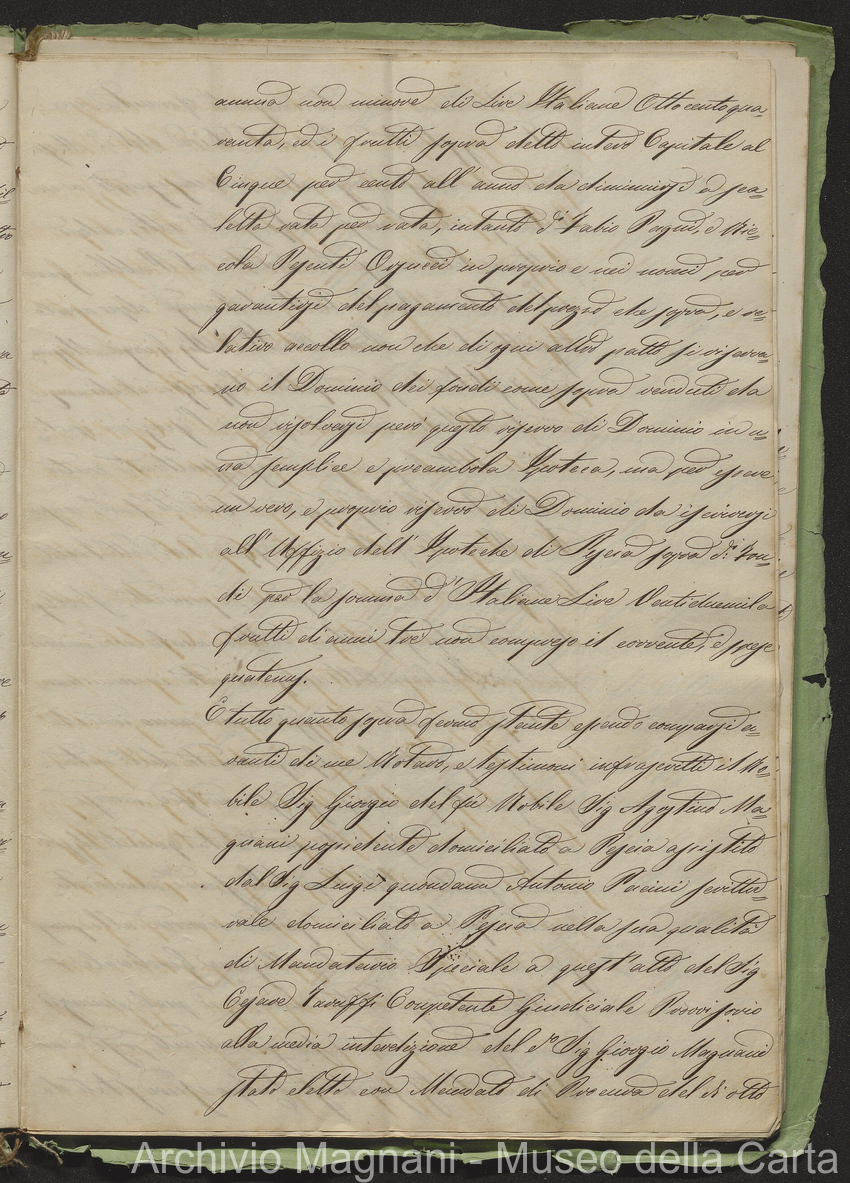 annua non minore di Lire Italiane Ottocentoqua=
ranta, ed i frutti sopra detto intero Capitale al
Cinque per cento all'anno da diminuirsi a sca=
letta rata per rata, intanto i Sig.ri Fabio Pagni, e Nic=
cola Pesenti Orsucci in proprio e nei nomi per
garantirsi del pagamento del prezzo che sopra, e re=
lativo accollo non che di ogni altro patto si riserva=
no il Dominio dei fondi come sopra venduti da
non risolversi però questo riservo di Dominio in u=
na semplice e preambola Ipoteca, ma per essere
un vero, e proprio riservo di Dominio da iscriversi
all'Uffizio dell'Ipoteche di Pescia sopra d.i Fon=
di per la somma d'Italiane Lire Ventiduemila
frutti di anni tre non compreso il corrente, e spese
quatenus.
E tutto quanto sopra fermo stante essendo comparsi a=
vanti di me Notaro, e testimoni infrascritti il No=
bile Sig Giorgio del fu Nobile Sig Agostino Ma=
gnani possidente domiciliato a Pescia assistito
dal Sig Luigi quondam Antonio Pacini scrittu=
rale domiciliato a Pescia nella sua qualità
di Mandatario Speciale a quest'atto del Sig
Cesare Taruffi Competente Giudiciale Provvisorio
alla media interdizione del d.o Sig Giorgio Magnani
stato eletto con Mandato di Procura del dì otto
Archivio Magnani - Museo della Carta